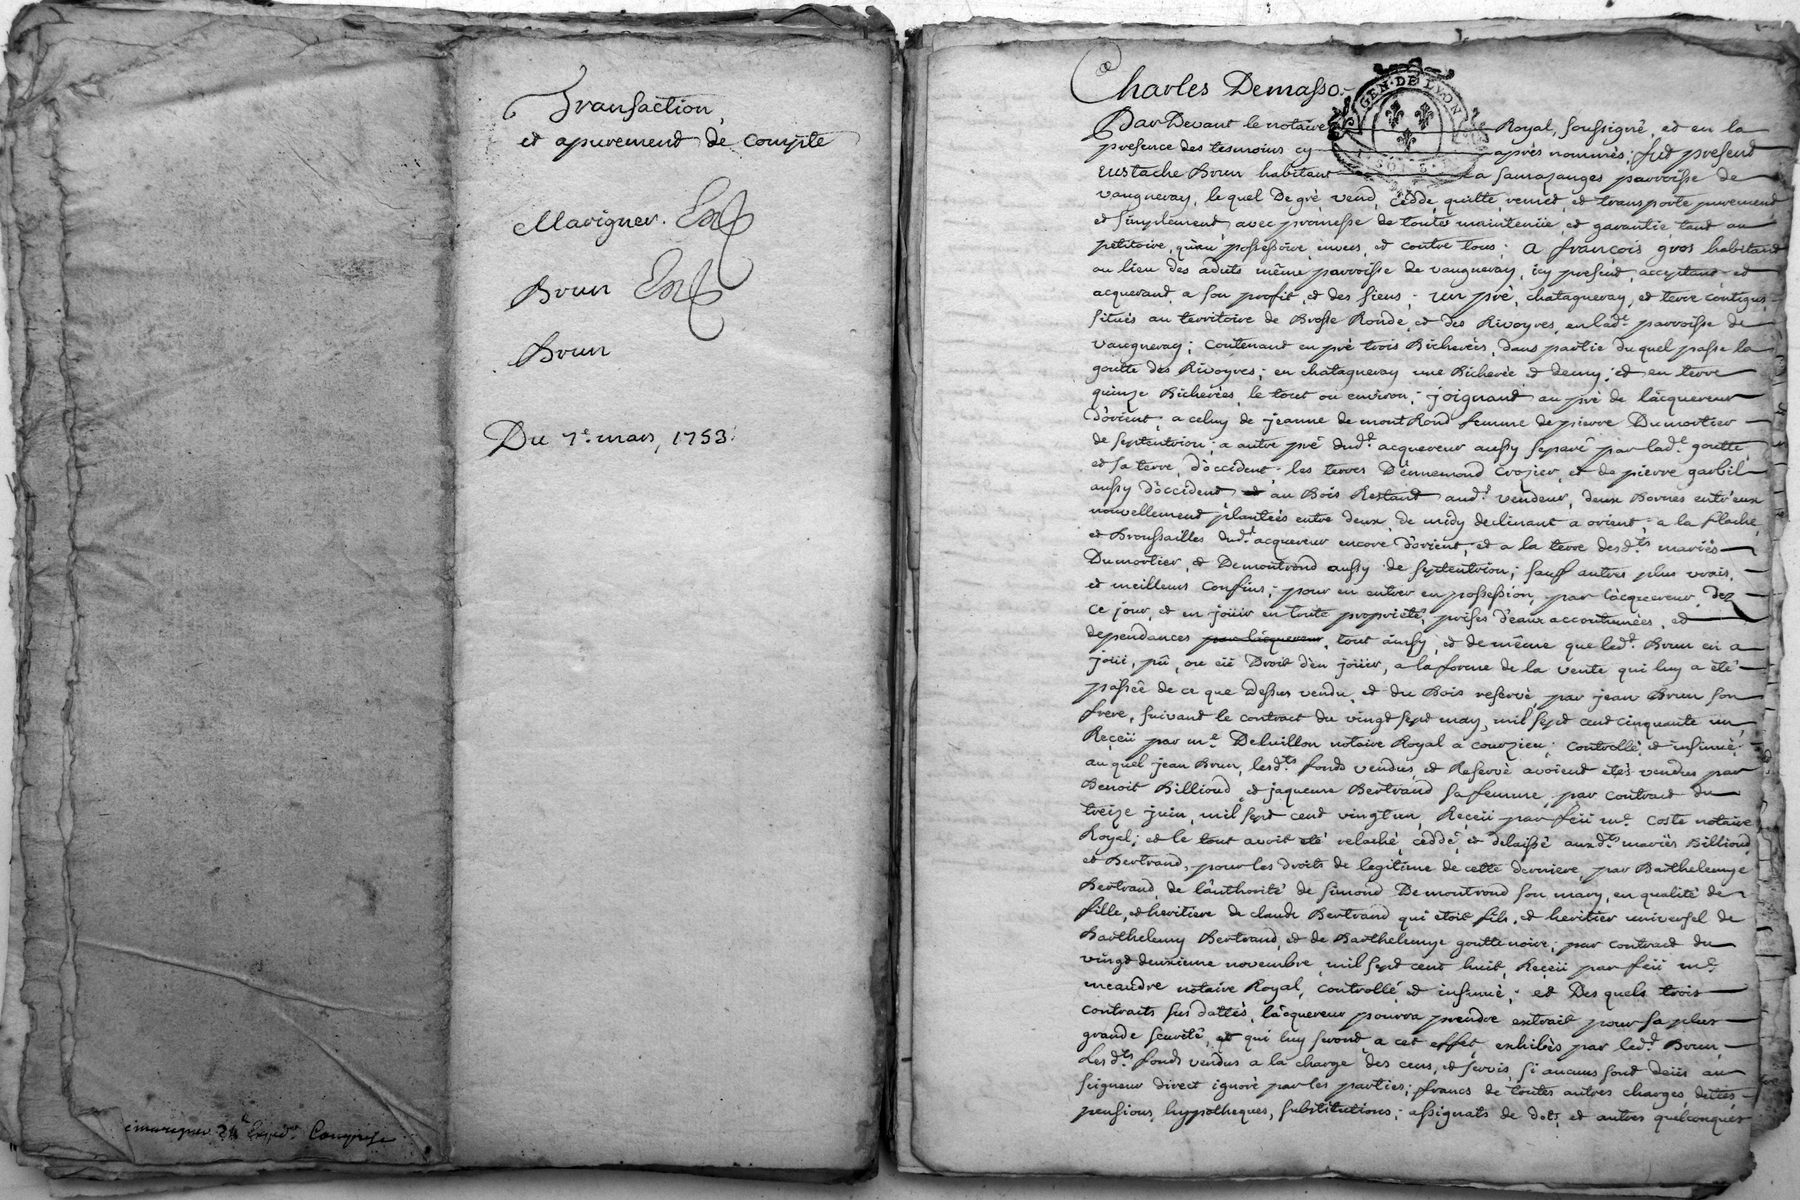 Transaction,
et apurement de compte
Marigner. Exp
Brun Exp
Brun
Du 7e. mars, 1753.
Charles Demasso.
GEN. DE LYON
Par Devant le notaire Royal, soussigné, et en la
presence des tesmoins cy après nommés; fut present
Eustache Brun habitant a samazanges parroisse de
vaugneray, lequel De gré vend, cedde, quitte, remet, et transporte purement
et simplement, avec promesse de toute maintenüe, et garantie tant au
petitoire, qu'au possessoire, envers, et contre tous; a francois gros habitant
au lieu des aduts même parroisse de vaugneray, icy present, acceptant, et
acquerant, a son profit, et des siens; un pré, chatagneray, et terre contigus
situés au territoire de Brosse Ronde, et des Rivoyres, en lade. parroisse de
vaugneray; contenant en pré trois Bicherées, dans partie du quel passe la
goutte des Rivoyres; en chatagneray une Bicherée et demy; et en terre
quinze Bicherées, le tout ou environ; joignant au pré de l'acquereur
d'orient, a celuy de jeanne de mont Rond femme de pierre Dumortier
de septentrion; a autre pré dudt. acquereur aussy separé par lade. goutte,
et sa terre, d'occident; les terres D'ennemond Crozier, et de pierre garbil
aussy d'occident, et au Bois Restant audt. vendeur, deux Bornes entr'eux
nouvellement plantées entre deux, de midy declinant a orient; a la flache,
et Broussailles dudt. acquereur encore d'orient; et a la terre desdts. mariés
Dumortier, et Demontrond aussy de septentrion; sauf autres plus vrais,
et meilleurs confins; pour en entrer en possession, par l'acquereur, dez
ce jour, et en joüir en toute proprieté, prises d'eaux accoutumées, et
dependances par l'acquereur, tout ainsy, et de même que ledt. Brun en a
joüi, pû, ou eü Droit d'en joüir, a la forme de la vente qui luy a été
passée de ce que Dessus vendu, et du Bois reservé, par jean Brun son
frere, suivant le contract du vingt sept may, mil sept cent cinquante un,
Reçeü par me. Deluillon notaire Royal a courzieu; controllé, et insinué;
au quel jean Brun, lesdts. fonds vendus, et Reservé avoient etés vendus par
Benoit Billioud, et jaqueme Bertrand sa femme, par contract du
treize juin, mil sept cent vingt un, Reçeü par feü me. Coste notaire
Royal; et le tout avoit eté relaché, ceddé, et delaissé auxdts. mariés Billioud,
et Bertrand, pour les droits de legitime de cette derniere, par Barthelemye
Bertrand, de l'authorité de simond Demontrond son mary, en qualité de
fille, et heritiere de claude Bertrand qui etoit fils, et heritier universel de
Barthelemy Bertrand, et de Barthelemye gouttenoire; par contract du
vingt deuxieme novembre, mil sept cent huit, Reçeü par feü me.
meandre notaire Royal, controllé et insinué; et Des quels trois
contraits sus dattés, l'acquereur pourra prendre extrait pour sa plus
grande seureté, et qui luy seront a cet effet, exhibés par ledt. Brun,
Lesdts. fonds vendus a la charge des cens, et servis, si aucuns sont deüs au
seigneur direct ignoré par les parties; francs de toutes autres charges, dettes
pensions, hypotheques, substitutions; assignats de dot, et autres quelconques